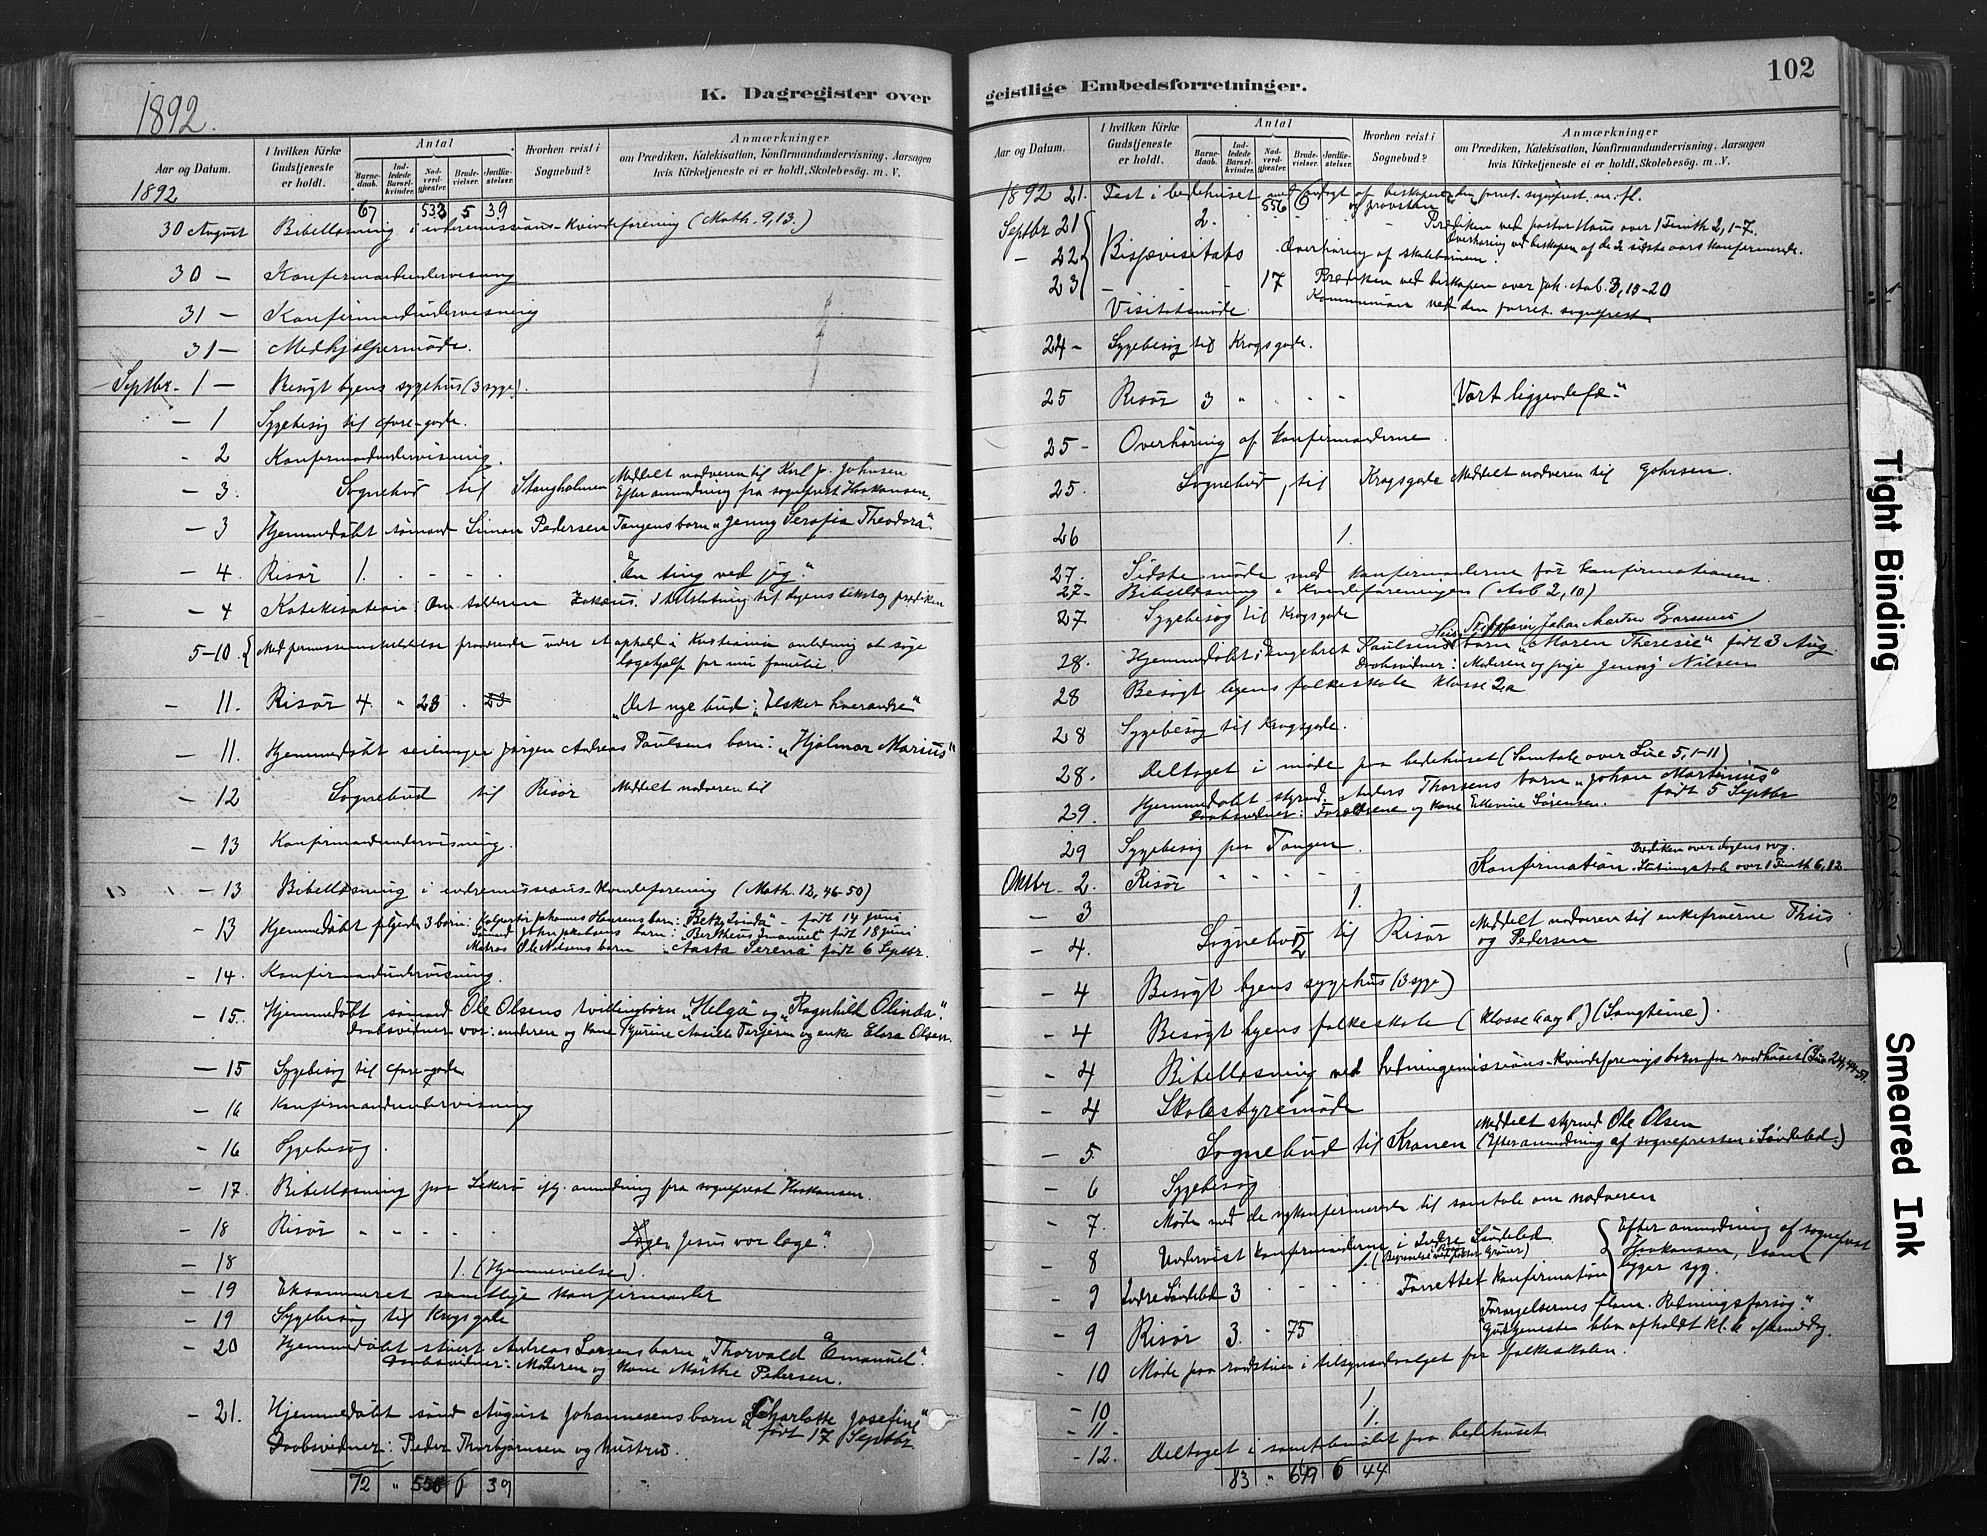 1892.
K. Dagregister over
Aar og Datum.
I hvilken Kirke Gudstjeneste er holdt.
Antal
Barnedaab.
Indledede Barselkvinder.
Nadverdgjæster.
Brudevielser.
Jordfæstelser.
Hvorhen reist i Sognebud?
Anmærkninger
om Prædiken, Katekisation, Konfirmandundervisning, Aarsagen
hvis Kirketjeneste ei er holdt, Skolebesøg. m. V.
1892
67 533 5 39
30 August Bibellæsning i indremissions-Kvindeforening (Math. 9,13.)
30 — Konfirmandundervisning
31 — Konfirmandundervisning
31 — Medhjælpermøde.
Septbr. 1 — Besøgt byens sygehus (3 syge).
— 1 Sygebesøg til
- 2 Konfirmandundervisning.
- 3. Sognebud til Stangholmen Meddelt nadveren til Karl J. Johnsen
Efter anmodning fra sogneprest Haakonsen.
— 3 Hjemmedøbt sømand Simon Pedersen Tangens barn „Jenny Serafia Theodora".
— 4. Risør 1. - - - - „En ting ved jeg."
— 4 Katekisation: Om tolderen Zakæus. I tilslutning til dagens tekst og prædiken
5-10. { Med permission fraværende under et ophold i Kristiania anledning at søge
lægehjælp for min familie.
- 11. Risør 4. " 23 . 23 „Det nye bud: „Elsker hverandre"
- 11. Hjemmedøbt Jørgen Andreas Paulsens barn: „Hjalmar Marius"
- 12 Sognebud til Risør Meddelt nadveren til
- 13 Konfirmandundervisning.
- 13 Bibellæsning i indremissions-Kvindeforening (Math. 12, 46-50)
- 13 Hjemmedøbt følgende 3 børn: Kolportør Johannes Hansens barn: „ - født 14 juni
Jakobsens barn: „Bertheus Emanuel" født 18 juni
Matros Ole Nielsens barn „Aasta Serena" født 6 Septbr.
- 14. Konfirmandundervisning
- 15. Hjemmedøbt sømand Ole Olsens tvillingbørn „Helga og „Ragnhild Olinda".
Daabsvidner var: moderen og Kone og enke Elora Olsen.
— 15 Sygebesøg til
- 16 Konfirmandundervisning
- 16 Sygebesøg.
- 17. Bibellæsning paa anmodning fra sogneprest Haakonsen.
- 18 Risør - - - - „Jesus vor læge".
- 18 1. (Hjemmevielse).
- 19 Eksamineret samtlige konfirmander
- 19 Sygebesøg til Kragsgade
- 20 Hjemmedøbt Andreas Larsens barn „Thorvald Emanuel".
Daabsvidner: Moderen og Kone Marthe Pedersen.
- 21. Hjemmedøbt sømd August Johannesens barn „Charlotte Josefine"
født 17 Septbr
Daabsvidner: Peder Thorbjørnsen og hustru.
72 " 556 6 39
geistlige Embedsforretninger.
102
Aar og Datum.
I hvilken Kirke Gudstjeneste er holdt.
Antal
Barnedaab.
Indledede Barselkvinder.
Nadverdgjæster.
Brudevielser.
Jordfæstelser.
Hvorhen reist i Sognebud?
Anmærkninger
om Prædiken, Katekisation, Konfirmandundervisning, Aarsagen
hvis Kirketjeneste ei er holdt, Skolebesøg. m. V.
1892 21. Fest i bedehuset af biskopen, den forret. sogneprest. m. fl.
og provsten
556 6
Septbr 21 2. Prædiken ved pastor Haus over 1 Timth 2, 1-7.
Overhøring ved biskopen af de 2 sidste aars konfirmerede.
- 22 Bispevisitats Overhøring af skolebørnene.
23 17 Prædiken ved biskopen over Joh. Aab. 3, 15-20
Kommunion ved den forret. sogneprest.
Visitatsmøde
24 - Sygebesøg til Kragsgade.
25 Risør 3 " . . - „Vort liggendefæ"
25 - Overhøring af konfirmanderne
25. Sognebud, til Kragsgade Meddelt nadveren til
26 1.
27. Sidste møde med konfirmanderne før konfirmationen
27- Bibellæsning i Kvindeforeningen (Aab 2, 10)
27 Sygebesøg til Kragsgade
Johan Martin
28. Hjemmedøbt Ingebret Paulsens barn „Maren Theresie" født 3 Aug.
Daabsvidner: Moderen og pige Jenny Nilsen
28 Besøgt byens folkeskole klasse 2a
28 Sygebesøg til Kragsgade.
28. Deltaget i møde paa bedehuset (Samtale over Luc 5, 1-11)
29. Hjemmedøbt styrmd. Anders Thorsens barn „Johan Martinius"
født 5 Septbr
Daabsvidner: Forældrene og Kone Ellevine Sørensen.
29 Sygebesøg paa Tangen.
Prædiken over dagens evg.
Oktbr. 2. Risør " " - - - Konfirmation. Slutningstale over 1 Timth 6, 12
— 3 1.
- 4. Sognebud 2 til Risør Meddelt nadveren til enkefruerne Thiis
og Pedersen
- 4 Besøgt byens sygehus (3 syge)
- 4 Besøgt byens folkeskole (klasse 6 a og b) (Sangtime).
- 4 Bibellæsning ved hedningemissions-kvindeforenings paa raadhuset (Luc 24, 44-51.
- 4 Skolestyremøde
- 5. Sognebud til Kranen Meddelt styrmd Ole Olsen
(Efter anmodning af sognepresten i Søndeled.)
- 6 Sygebesøg
- 7. Møde med de nykonfirmerede til samtale om nadveren
- 8 Undervist konfirmanderne i Indre Søndeled { Efter anmodning af sogneprest
Haakonsen, som
ligger syg.
1.
- 9 Indre Søndeled 3 - - - Forrettet konfirmation
- 9 Risør 3. " 75 „Forargelsernes flom. Redningsforsøg."
Gudstjenesten blev afholdt kl. 6 eftermiddag.
- 10 Møde paa raadstuen i tilsynsudvalget for folkeskolen.
- 10 1.
- 11. 1.
- 12. Deltaget i samtalemødet paa bedehuset
83 " 649 6 44
Tight Binding
Smeared Ink